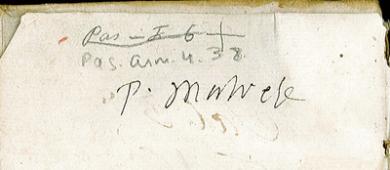 Pas - I 6
Pas. arm. 4. 38
P. Malvese